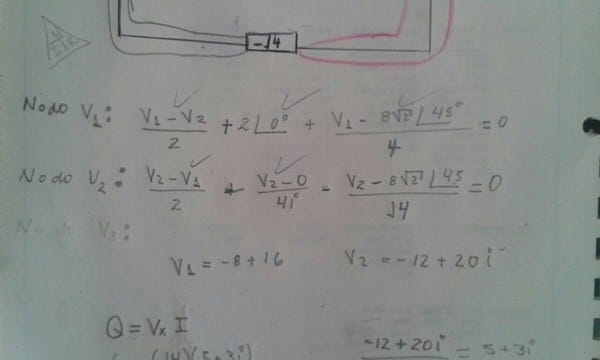 -J4
Nodo V1: (V1 - V2)/2 + 2∠0° + (V1 - 8√2∠45°)/4 = 0
Nodo V2: (V2 - V1)/2 + (V2 - 0)/4i - (V2 - 8√2∠45)/J4 = 0
Nodo V3:
V1 = -8 + 16 V2 = -12 + 20i
Q = Vx I
-12 + 20i = 5 + 3i